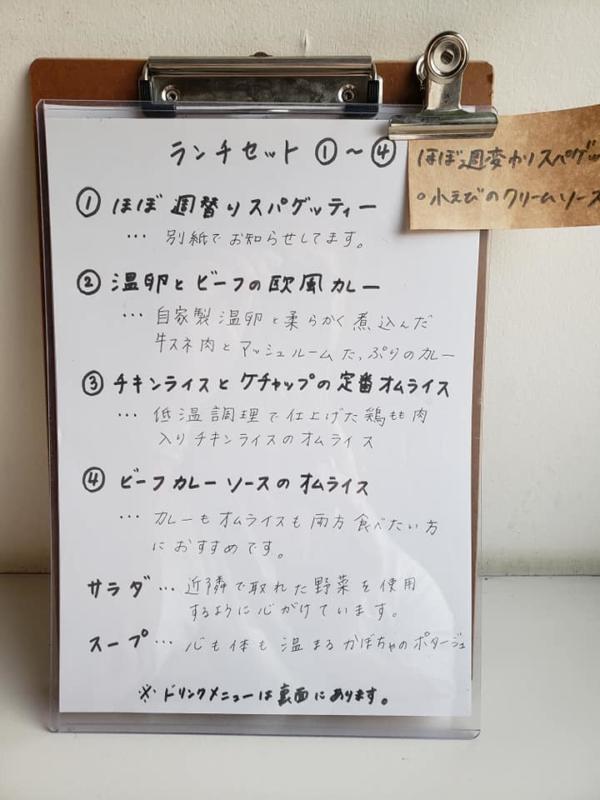 ランチセット ①〜④
① ほぼ週替りスパゲッティー
… 別紙でお知らせしてます。
② 温卵とビーフの欧風カレー
… 自家製温卵と柔らかく煮込んだ
牛スネ肉とマッシュルームたっぷりのカレー
③ チキンライスとケチャップの定番オムライス
… 低温調理で仕上げた鶏もも肉
入りチキンライスのオムライス
④ ビーフカレーソースのオムライス
… カレーもオムライスも両方食べたい方
におすすめです。
サラダ… 近隣で取れた野菜を使用
するように心がけています。
スープ… 心も体も温まるかぼちゃのポタージュ
※ ドリンクメニューは裏面にあります。
ほぼ週変わりスパゲッ
○小えびのクリームソース